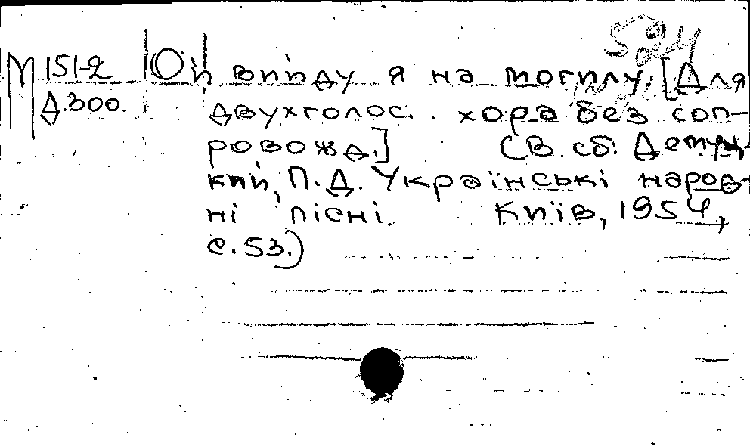 М 151-2 Ой вийду я на могилу. [Для
Д.300. двухголос. хора без соп-
ровожд.] (В сб. Демуц-
кий, П.Д. Українські народ-
ні пісні. Київ, 1954,
с.53.)